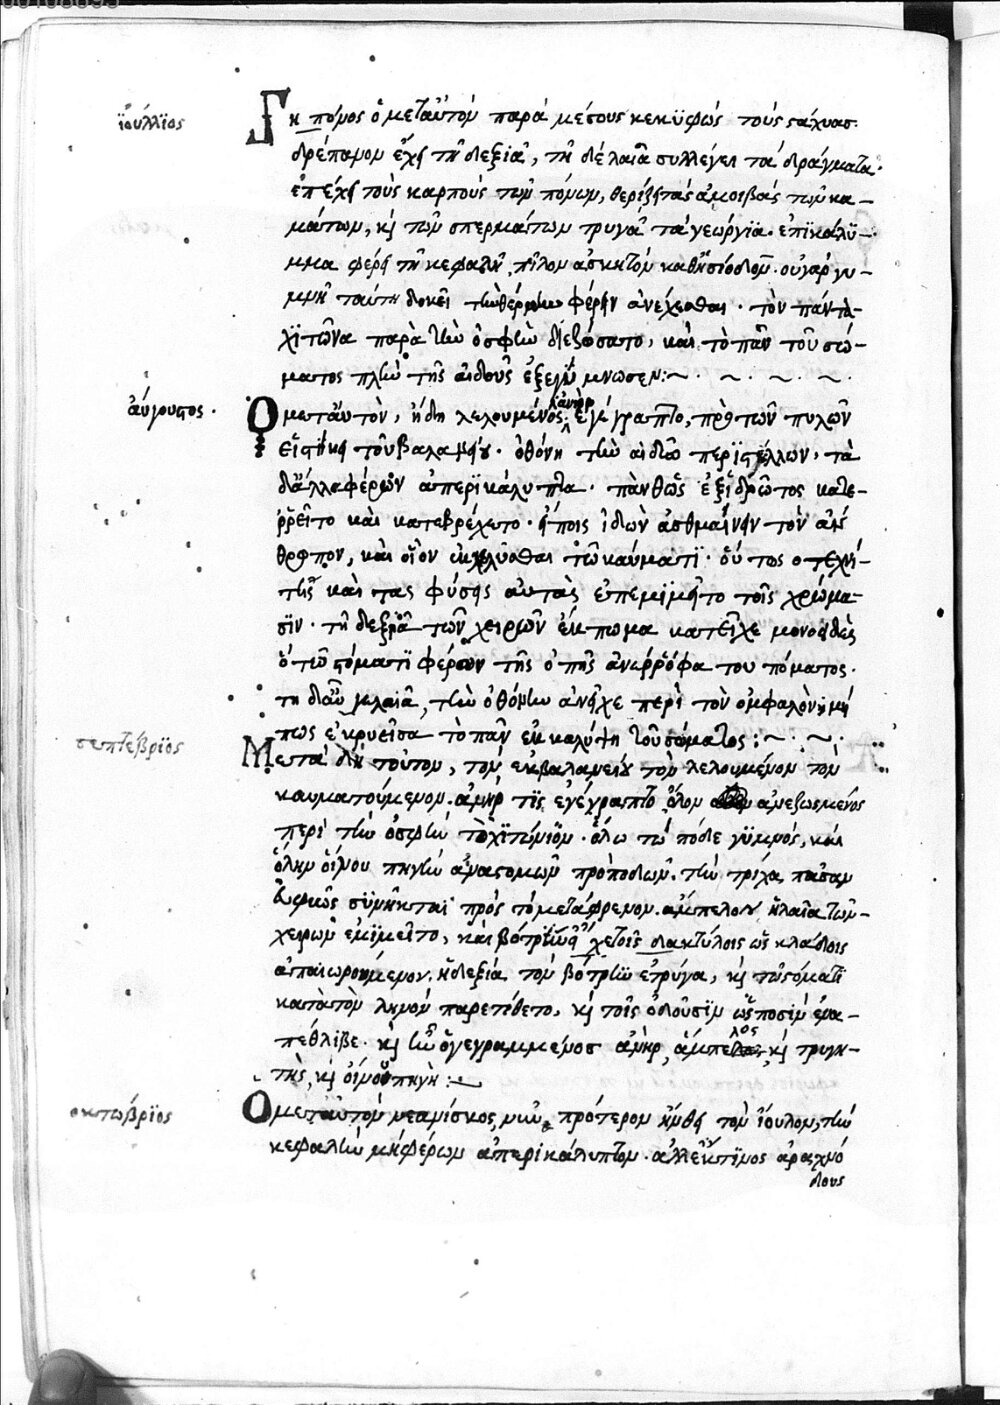 ϊούλλϊος
Γηπόνος ὁ μεταὐτὸν παρὰ μέσους κεκϋφὼς τοὺς στάχυας.
δρέπανον ἔχει τῆ δεξιᾶ, τῆ δὲ λαιᾶ συλλέγει τὰ δράγματα.
ἐπέχει τοὺς καρποὺς τῶν πόνων, θερίζει τὰς ἀμοιβὰς τῶν κα-
μάτων, κ τῶν σπερμάτων τρυγᾶ τὰ γεώργϊα. ἐπϊκάλϋ-
μμα φέρει τῆ κεφαλῆ, πῖλον ἀσκητὸν καθησίοδον. οὐ γὰρ γυ-
μνὴ ταύτη δοκεῖ φέρειν ἀνέχεσθαι. τὸν πάντα
χϊτῶνα παρὰ τὴν ὀσφῢν διεζώσατο, καὶ τὸ πᾶν τοῦ σώ-
ματος πλὴν τῆς αἰδοῦς ἐξεγύμνωσεν:~ . ~ . ~ . ~
αὔγουστος.
Ὁ μεταὐτὸν, ἤδη λελουμένος ἀνὴρ ἐγέγραπτο, πρὸ τῶν πυλῶν
εἱστήκει τοῦ βαλανείου. ὀθόνη τὴν αἰδῶ περϊστέλλων, τὰ
δἄλλα φέρων ἀπερϊκάλυπτα. πὰνθὡς ἐξ ἱδρῶτος κατε-
ρρεῖτο καὶ κατεβρέχετο. εἴποις ἰδὼν ἀσθμαίνειν τὸν ἄν
θρωπον, καὶ οἷον ἐκλύεσθαι τῶ καύματϊ. οὕτως ὁ τεχνί-
της καὶ τὰς φύσεις αὐτὰς ἐπεμϊμεῖτο τοῖς χρώμα-
σϊν. τῆ δεξιᾶ τῶν χειρῶν ἔκπωμα κατεῖχε μονοειδὲς
ὃ τῶ στόματϊ φέρων τῆς ὀπῆς ἀνερρόφα τοῦ πόματος.
τῆ διαῦ λαιᾶ, τὴν ὀθόνην ἀνεῖχε περὶ τὸν ὀμφαλὸν, μή
πως ἐκρυεῖσα τὸ πᾶν ἐκκαλύψη τοῦ σώματος: ~ . ~ .
σεπτεβρϊος
Μετὰ δὴ τοῦτον, τὸν ἐκβαλανείου τὸν λελουμένον τὸν
καυματούμενον. ἀνήρ τϊς ἐγέγραπτο ὅλον ἀνεζωσμένος
περὶ τὴν ὀσφὺν τὸ χϊτώνιον. ὅλω τὼ πόδε γϋμνὸς, καὶ
ὅλην οἴνου πηγὴν ἀναστομῶν πρὸ ποδῶν. τὴν τρίχα πᾶσαν
συνῆκται πρὸς τὸ μετάφρενον. ἀμπελον ἡ λαιὰ τῶν
χειρῶν ἐμϊμεῖτο, καὶ βότρυς εἶχε τοῖς δακτύλοις ὡς κλάδοις
ἀπαιωρούμενον. ἡ δεξιὰ τὸν βότρϋν ἐτρύγα, κ τῶ στόματϊ
κατὰ τὸν ληνὸν παρετίθετο, κ τοῖς ὀδοῦσϊν ὡς ποσὶν ἐνα-
πέθλιβε. κ ἦν ὁ γεγραμμένος ἀνὴρ, ἄμπελος, κ τρυγη-
τὴς, κ οἴνου πηγή:~
οκτώβρϊος
Ὁ μεταὐτὸν νεανίσκος, νῦν πρότερον ἤνθει τὸν ἴουλον, τὴν
κεφαλὴν μὴ φέρων ἀπερικάλυπτον. ἀλλ ἔντϊμος ἀραχνώ
δους